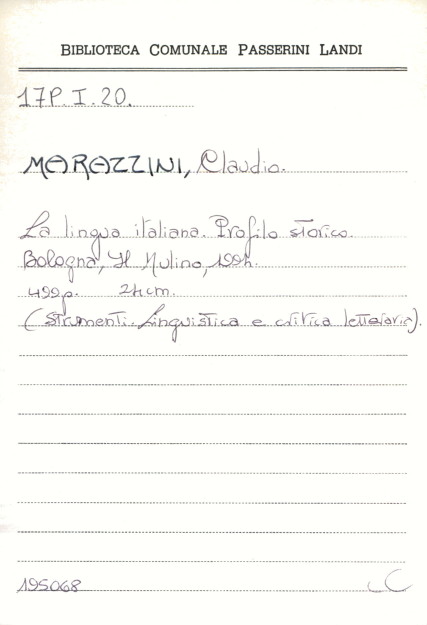 BIBLIOTECA COMUNALE PASSERINI LANDI
17P. I. 20.
MARAZZINI, Claudio.
La lingua italiana. Profilo storico.
Bologna, Il Mulino, 1994.
499p. 24cm.
(Strumenti. Linguistica e critica letteraria).
195068